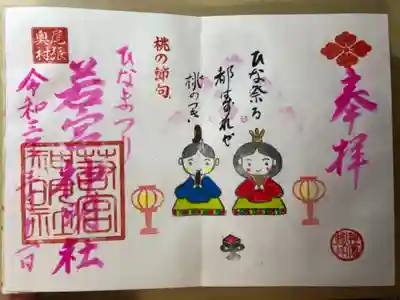 奉拝
ひな祭る
都はずれや
桃の月
桃の節句
ひなまつり
尾張
奥村
若宮神明社
令和三年
日